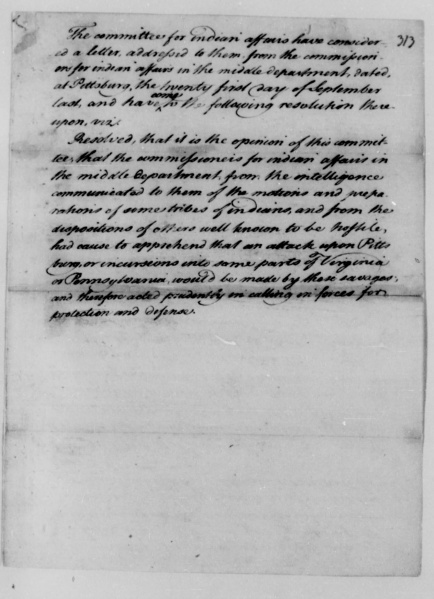 313
The committee for indian affairs have consider-
ed a letter, addressed to them from the commission-
ers for indian affairs in the middle department, dated,
at Pittsburg, the twenty first day of September
last, and have come to the following resolution there-
upon, viz.
Resolved, that it is the opinion of this commit-
tee, that the commissioners for indian affairs in
the middle department, from the intelligence
communicated to them of the motions and prepa-
rations of some tribes of indians, and from the
dispositions of others well known to be hostile,
had cause to apprehend that an attack upon Pitts-
burg, or incursions into some parts of Virginia
or Pennsylvania, would be made by those savages,
and therefore acted prudently in calling in forces for
protection and defense.